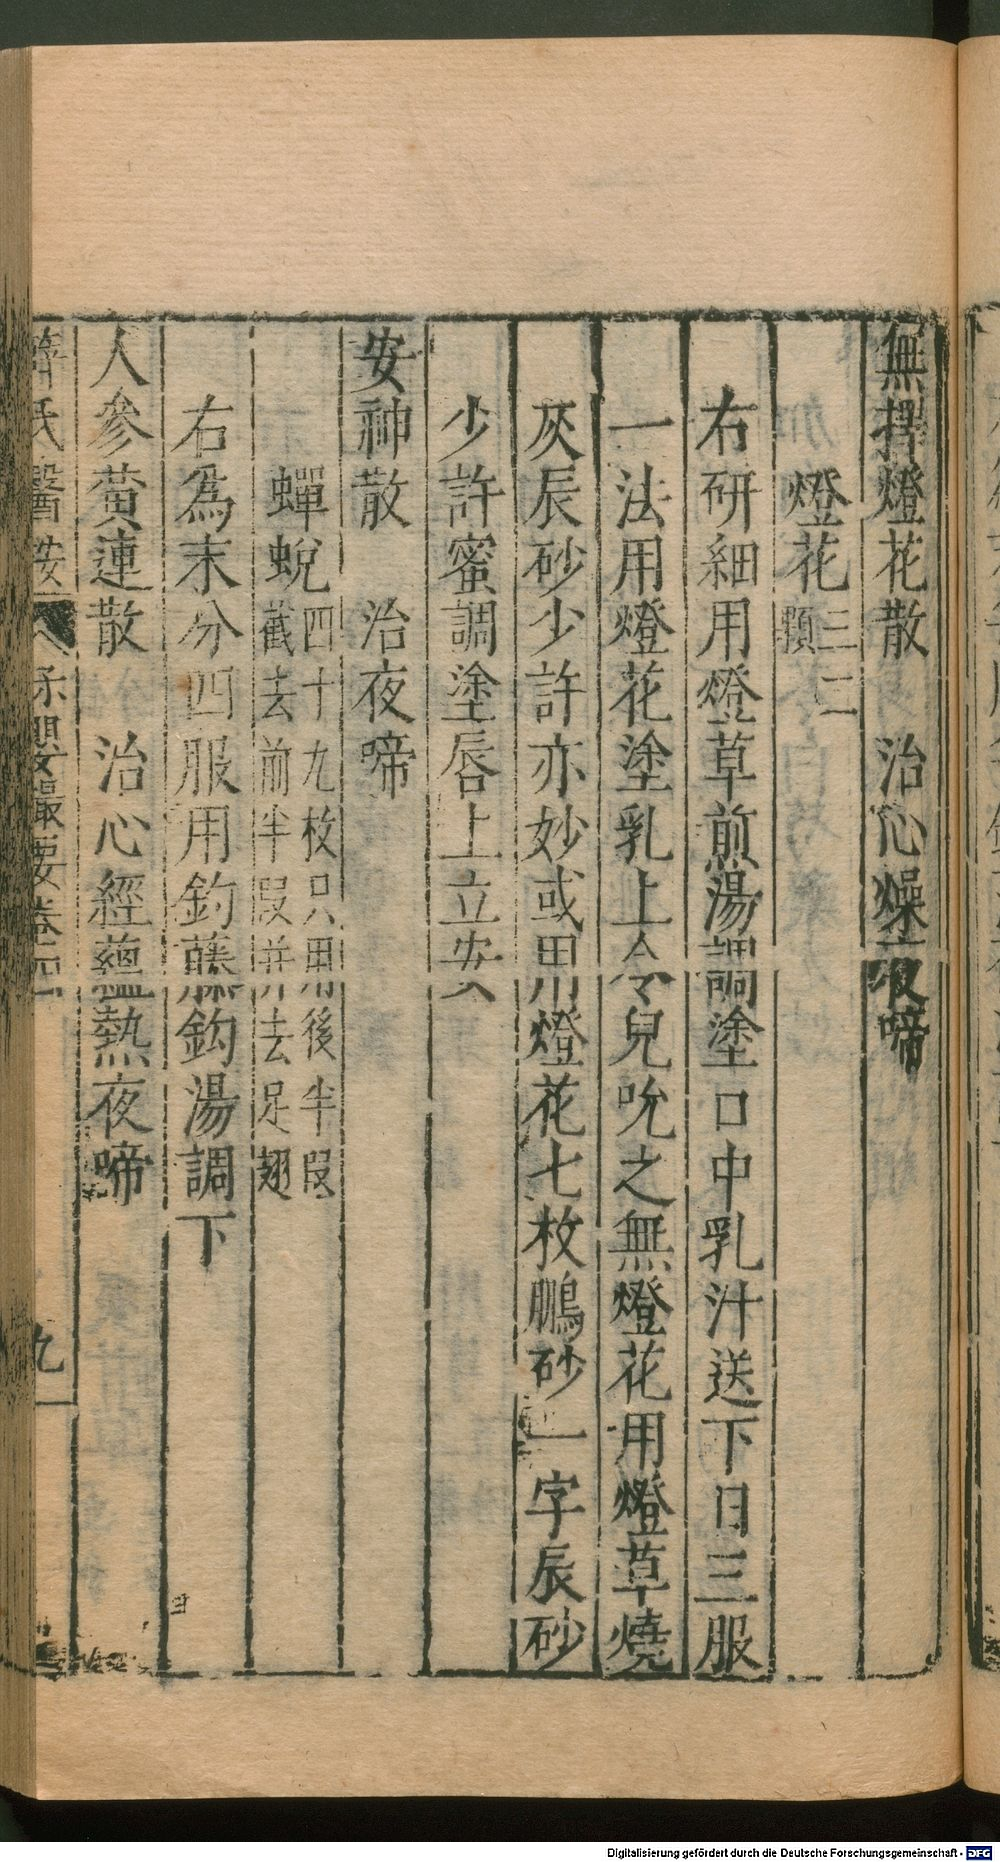 無擇燈花散　治心燥夜啼
燈花三二顆
右研細用燈草煎湯調塗口中乳汁送下日三服
一法用燈花塗乳上令兒吮之無燈花用燈草燒
灰辰砂少許亦妙或用燈花七枚鵬砂一字辰砂
少許蜜調塗唇上立安
安神散　治夜啼
蟬蛻四十九枚只用後半段截去前半段并去足翅
右爲末分四服用鈎藤鈎湯調下
人參黃連散　治心經蘊熱夜啼
薛氏醫按　保嬰撮要卷四　九
Digitalisierung gefördert durch die Deutsche Forschungsgemeinschaft - DFG